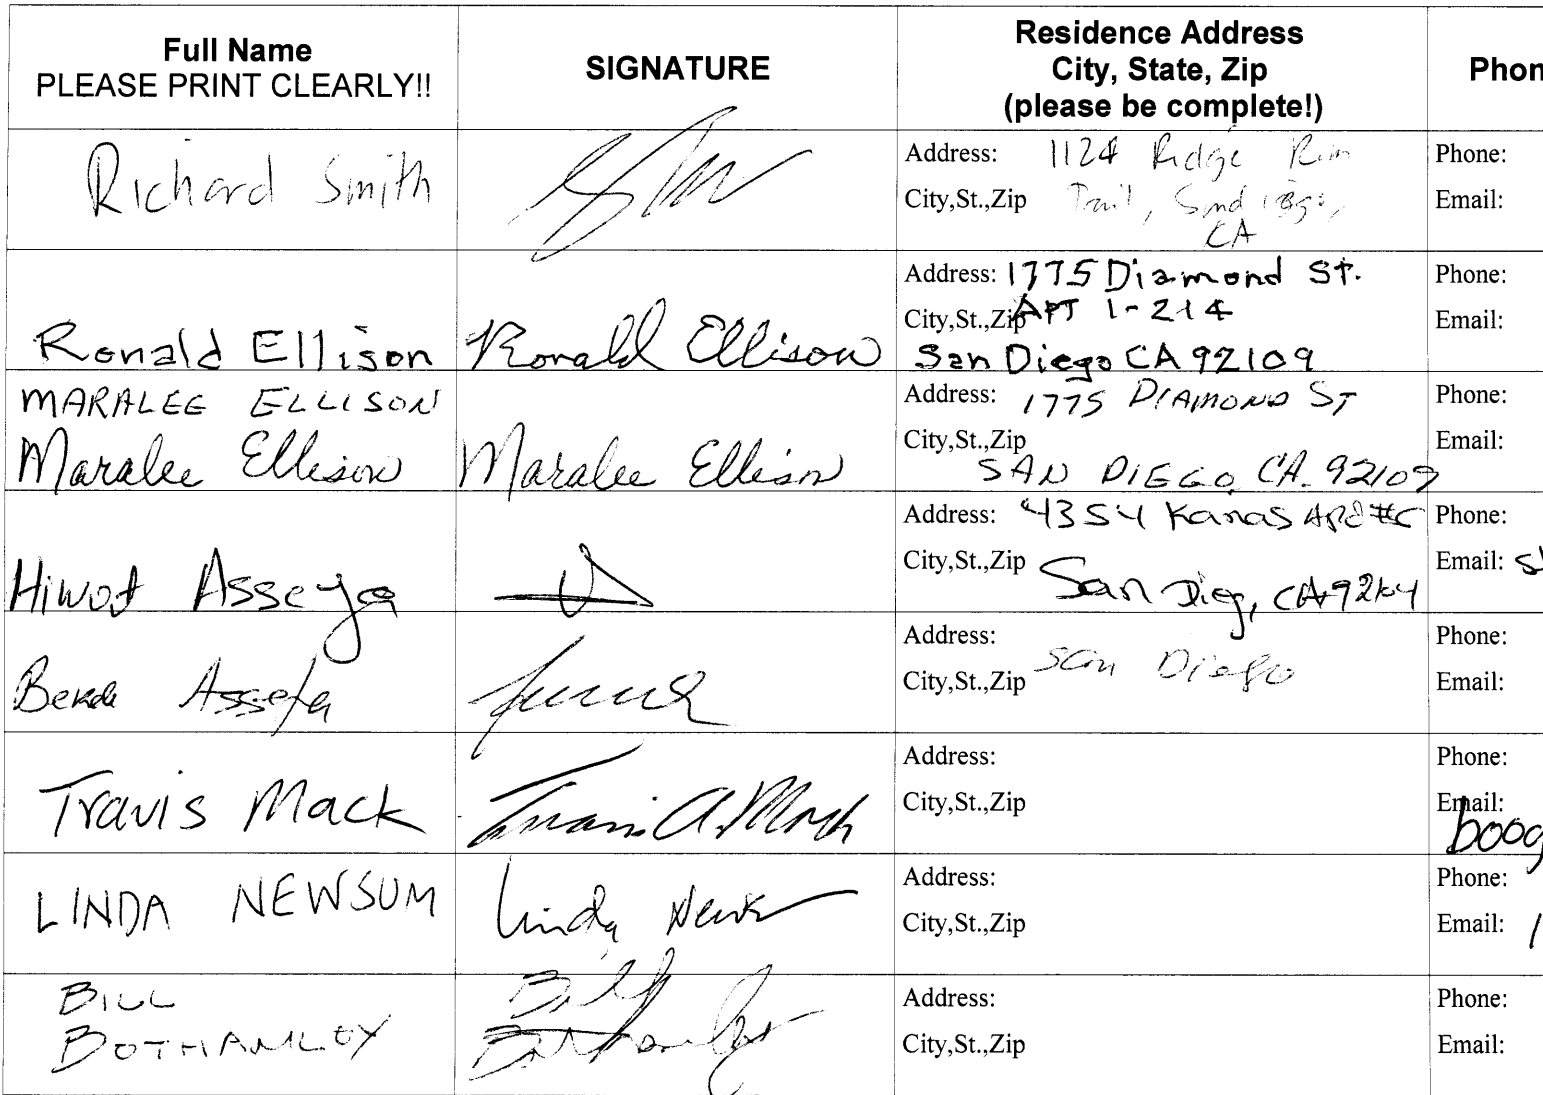 Full Name
PLEASE PRINT CLEARLY!!
SIGNATURE
Residence Address
City, State, Zip
(please be complete!)
Phon
Richard Smith
Address: 1124 Ridge Rim
City,St.,Zip Trail, San Diego,
CA
Phone:
Email:
Ronald Ellison
Ronald Ellison
Address: 1775 Diamond St.
City,St.,Zip APT 1-214
San Diego CA 92109
Phone:
Email:
MARALEE ELLISON
Maralee Ellison
Maralee Ellison
Address: 1775 DIAMOND ST
City,St.,Zip
SAN DIEGO, CA. 92109
Phone:
Email:
Hiwot
Address: 4354 Kanas
City,St.,Zip San Dieg, CA
Phone:
Email:
Assefa
Address:
City,St.,Zip San Diego
Phone:
Email:
Travis Mack
Travis A. Mack
Address:
City,St.,Zip
Phone:
Email:
boog
LINDA NEWSUM
Linda
Address:
City,St.,Zip
Phone:
Email:
BILL
BOTHAMLEY
Bill
Bothamley
Address:
City,St.,Zip
Phone:
Email: